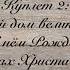 Куплет 2:
й дом Вели
нём Рожд
ах Христа